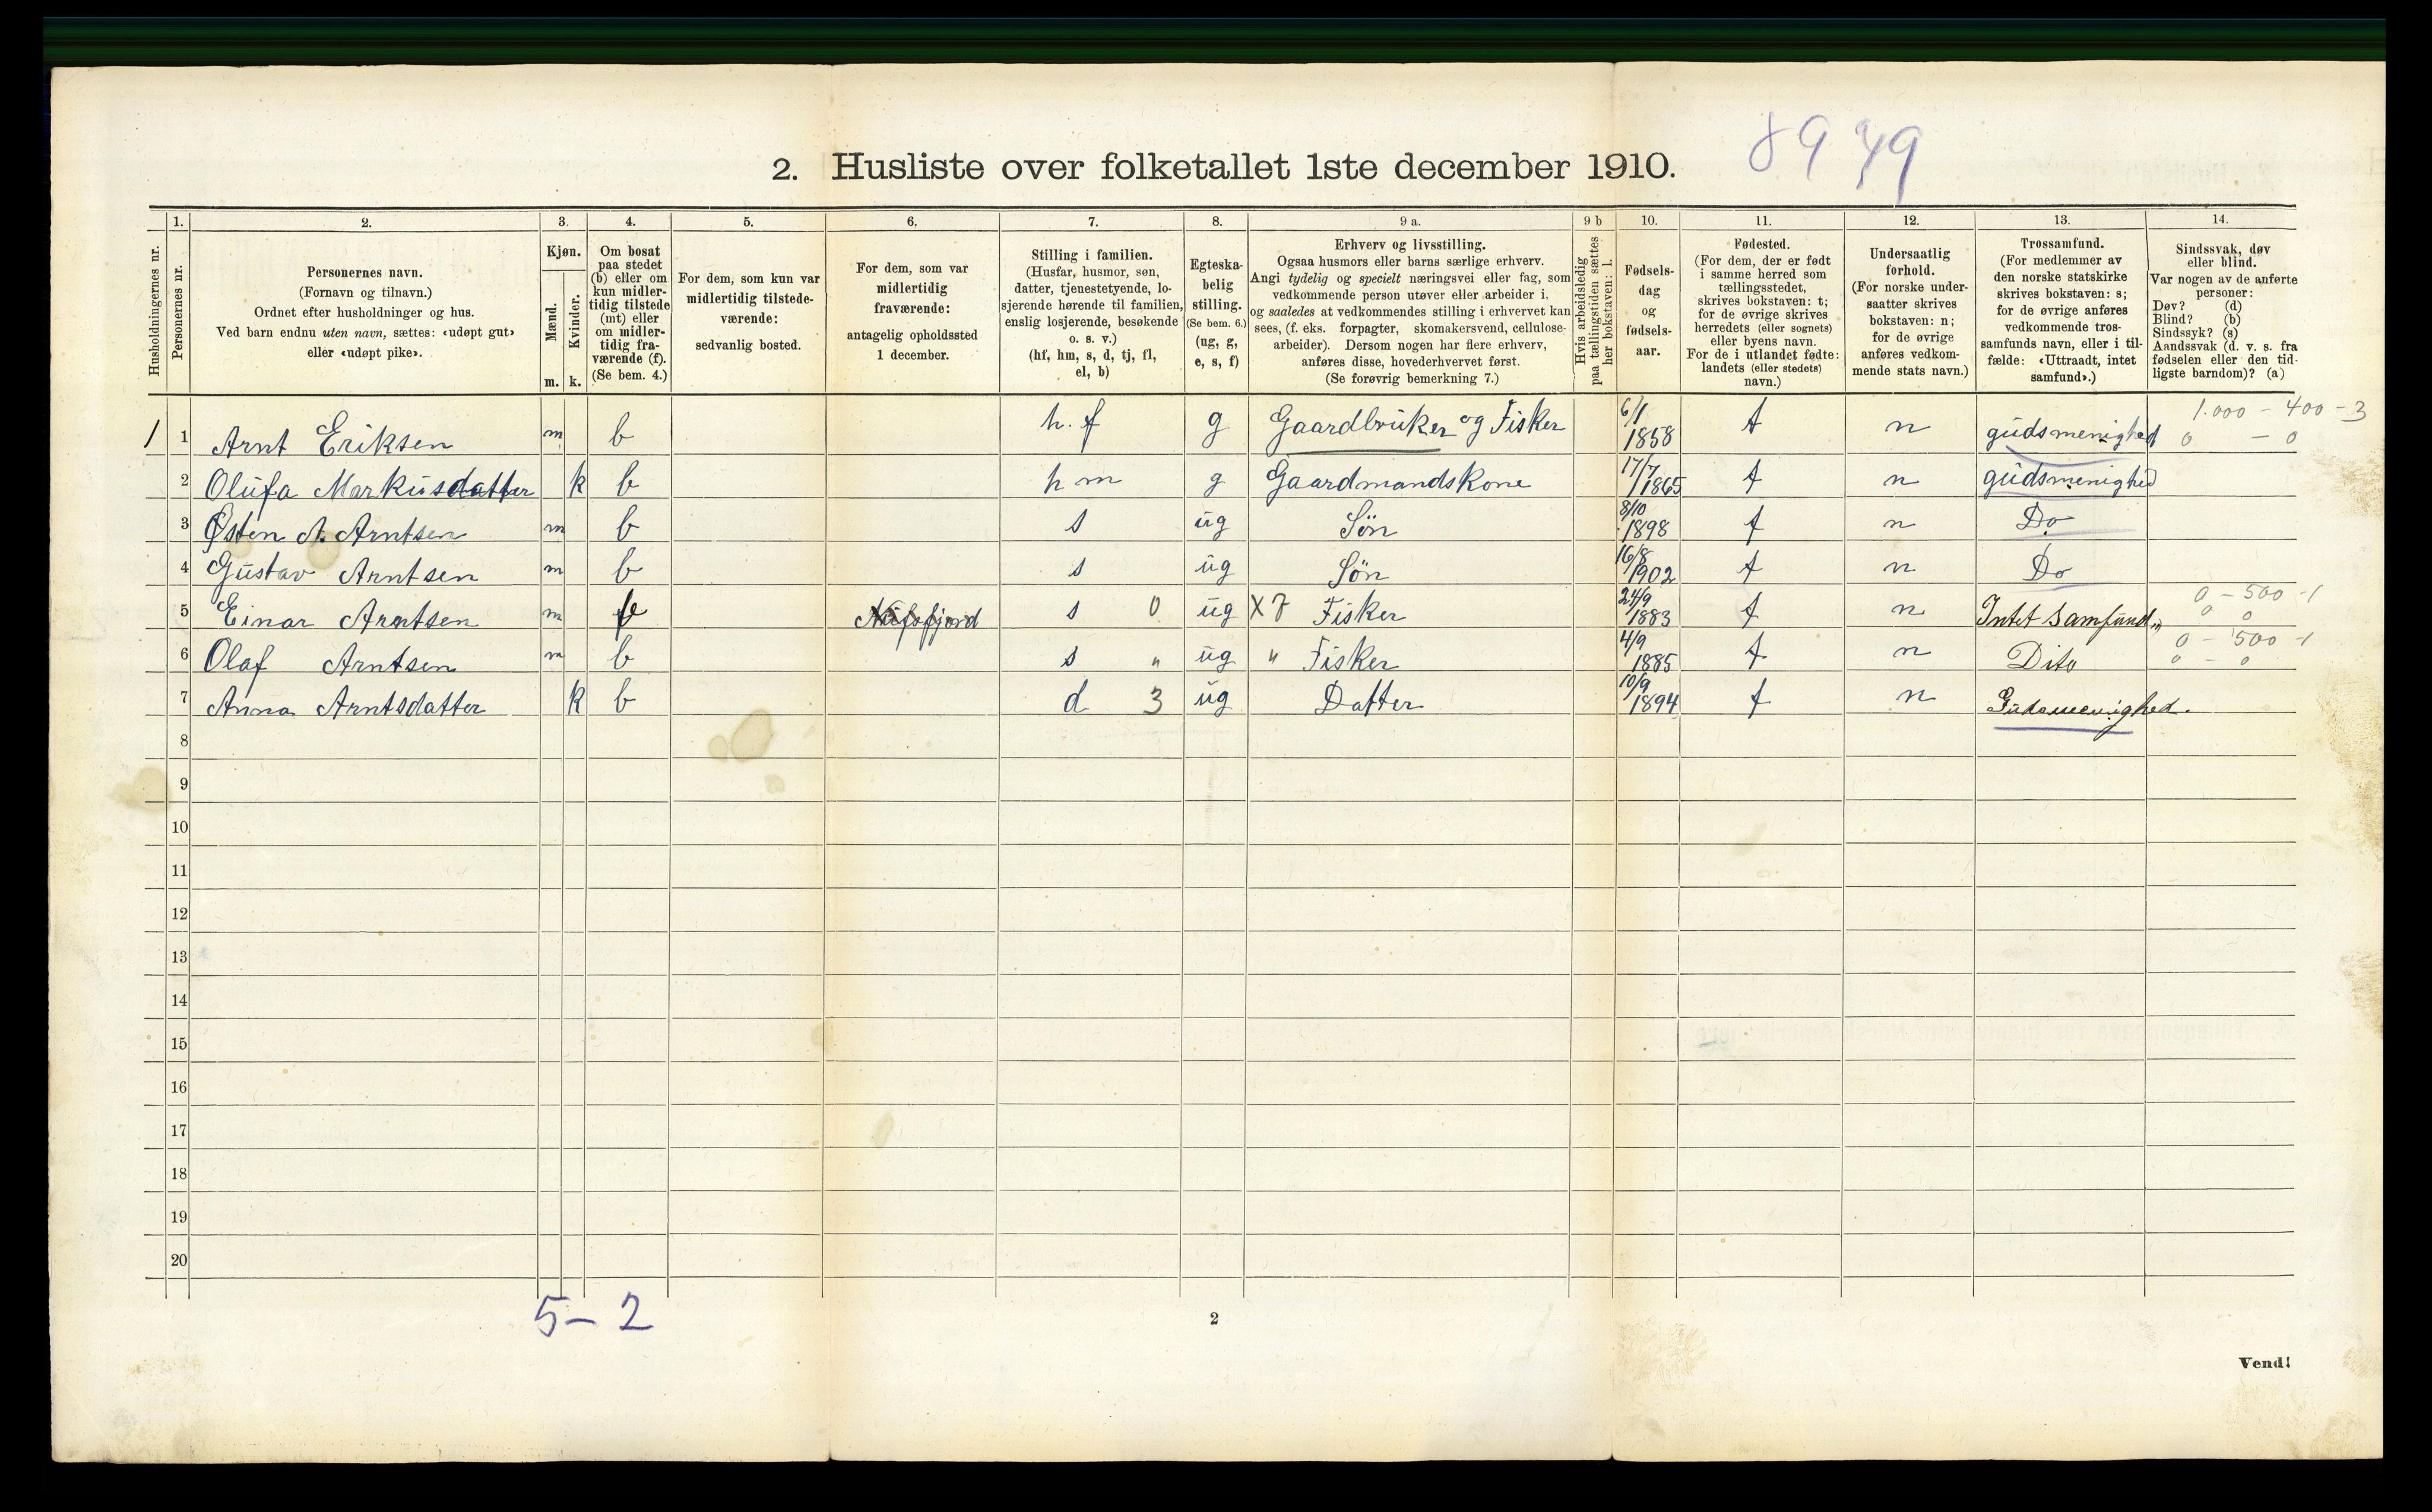 89 49
2. Husliste over folketallet 1ste december 1910.
Husholdningernes nr.
1.
Personernes nr.
2.
Personernes navn.
(Fornavn og tilnavn.)
Ordnet efter husholdninger og hus.
Ved barn endnu uten navn, sættes: «udøpt gut»
eller «udøpt pike».
3.
Kjøn.
Mænd.
Kvinder.
m. k.
4.
Om bosat
paa stedet
(b) eller om
kun midler-
tidig tilstede
(mt) eller
om midler-
tidig fra-
værende (f).
(Se bem. 4.)
5.
For dem, som kun var
midlertidig tilstede-
værende:
sedvanlig bosted.
6.
For dem, som var
midlertidig
fraværende:
antagelig opholdssted
1 december.
7.
Stilling i familien.
(Husfar, husmor, søn,
datter, tjenestetyende, lo-
sjerende hørende til familien,
enslig losjerende, besøkende
o. s. v.)
(hf, hm, s, d, tj, fl,
el, b)
8.
Egteska-
belig
stilling.
(Se bem. 6.)
(ug, g,
e, s, f)
9 a.
Erhverv og livsstilling.
Ogsaa husmors eller barns særlige erhverv.
Angi tydelig og specielt næringsvei eller fag, som
vedkommende person utøver eller arbeider i,
og saaledes at vedkommendes stilling i erhvervet kan
sees, (f. eks. forpagter, skomakersvend, cellulose-
arbeider). Dersom nogen har flere erhverv,
anføres disse, hovederhvervet først.
(Se forøvrig bemerkning 7.)
9 b
Hvis arbeidsledig
paa tællingstiden sættes
her bokstaven: l.
10.
Fødsels-
dag
og
fødsels-
aar.
11.
Fødested.
(For dem, der er født
i samme herred som
tællingsstedet,
skrives bokstaven: t;
for de øvrige skrives
herredets (eller sognets)
eller byens navn.
For de i utlandet fødte:
landets (eller stedets)
navn.)
12.
Undersaatlig
forhold.
(For norske under-
saatter skrives
bokstaven: n;
for de øvrige
anføres vedkom-
mende stats navn.)
13.
Trossamfund.
(For medlemmer av
den norske statskirke
skrives bokstaven: s;
for de øvrige anføres
vedkommende tros-
samfunds navn, eller i til-
fælde: «Uttraadt, intet
samfund».)
14.
Sindssvak, døv
eller blind.
Var nogen av de anførte
personer:
Døv? (d)
Blind? (b)
Sindssyk? (s)
Aandssvak (d. v. s. fra
fødselen eller den tid-
ligste barndom)? (a)
1 1 Arnt Eriksen m b h. f g Gaardbruker og Fisker 6/1 1858 t n gudsmenighed 1.000 - 400 - 3 0 - 0
2 Olufa Markusdatter k b h m g Gaardmandskone 17/7 1865 t n gudsmenighed
3 Østen A. Arntsen m b s ug Søn 8/10 1898 t n Do
4 Gustav Arntsen m b s ug Søn 16/8 1902 t n Do
5 Einar Arntsen m s 0 ug X 7 Fisker 24/9 1883 t n Intet Samfund 0 - 500 - 1 0 0
6 Olaf Arntsen m b s " ug " Fisker 4/9 1885 t n Dito 0 - 500 - 1 0 - 0
7 Anna Arntsdatter k b d 3 ug Datter 10/9 1894 t n Gudsmenighed.
8
9
10
11
12
13
14
15
16
17
18
19
20
5 - 2
2
Vend!